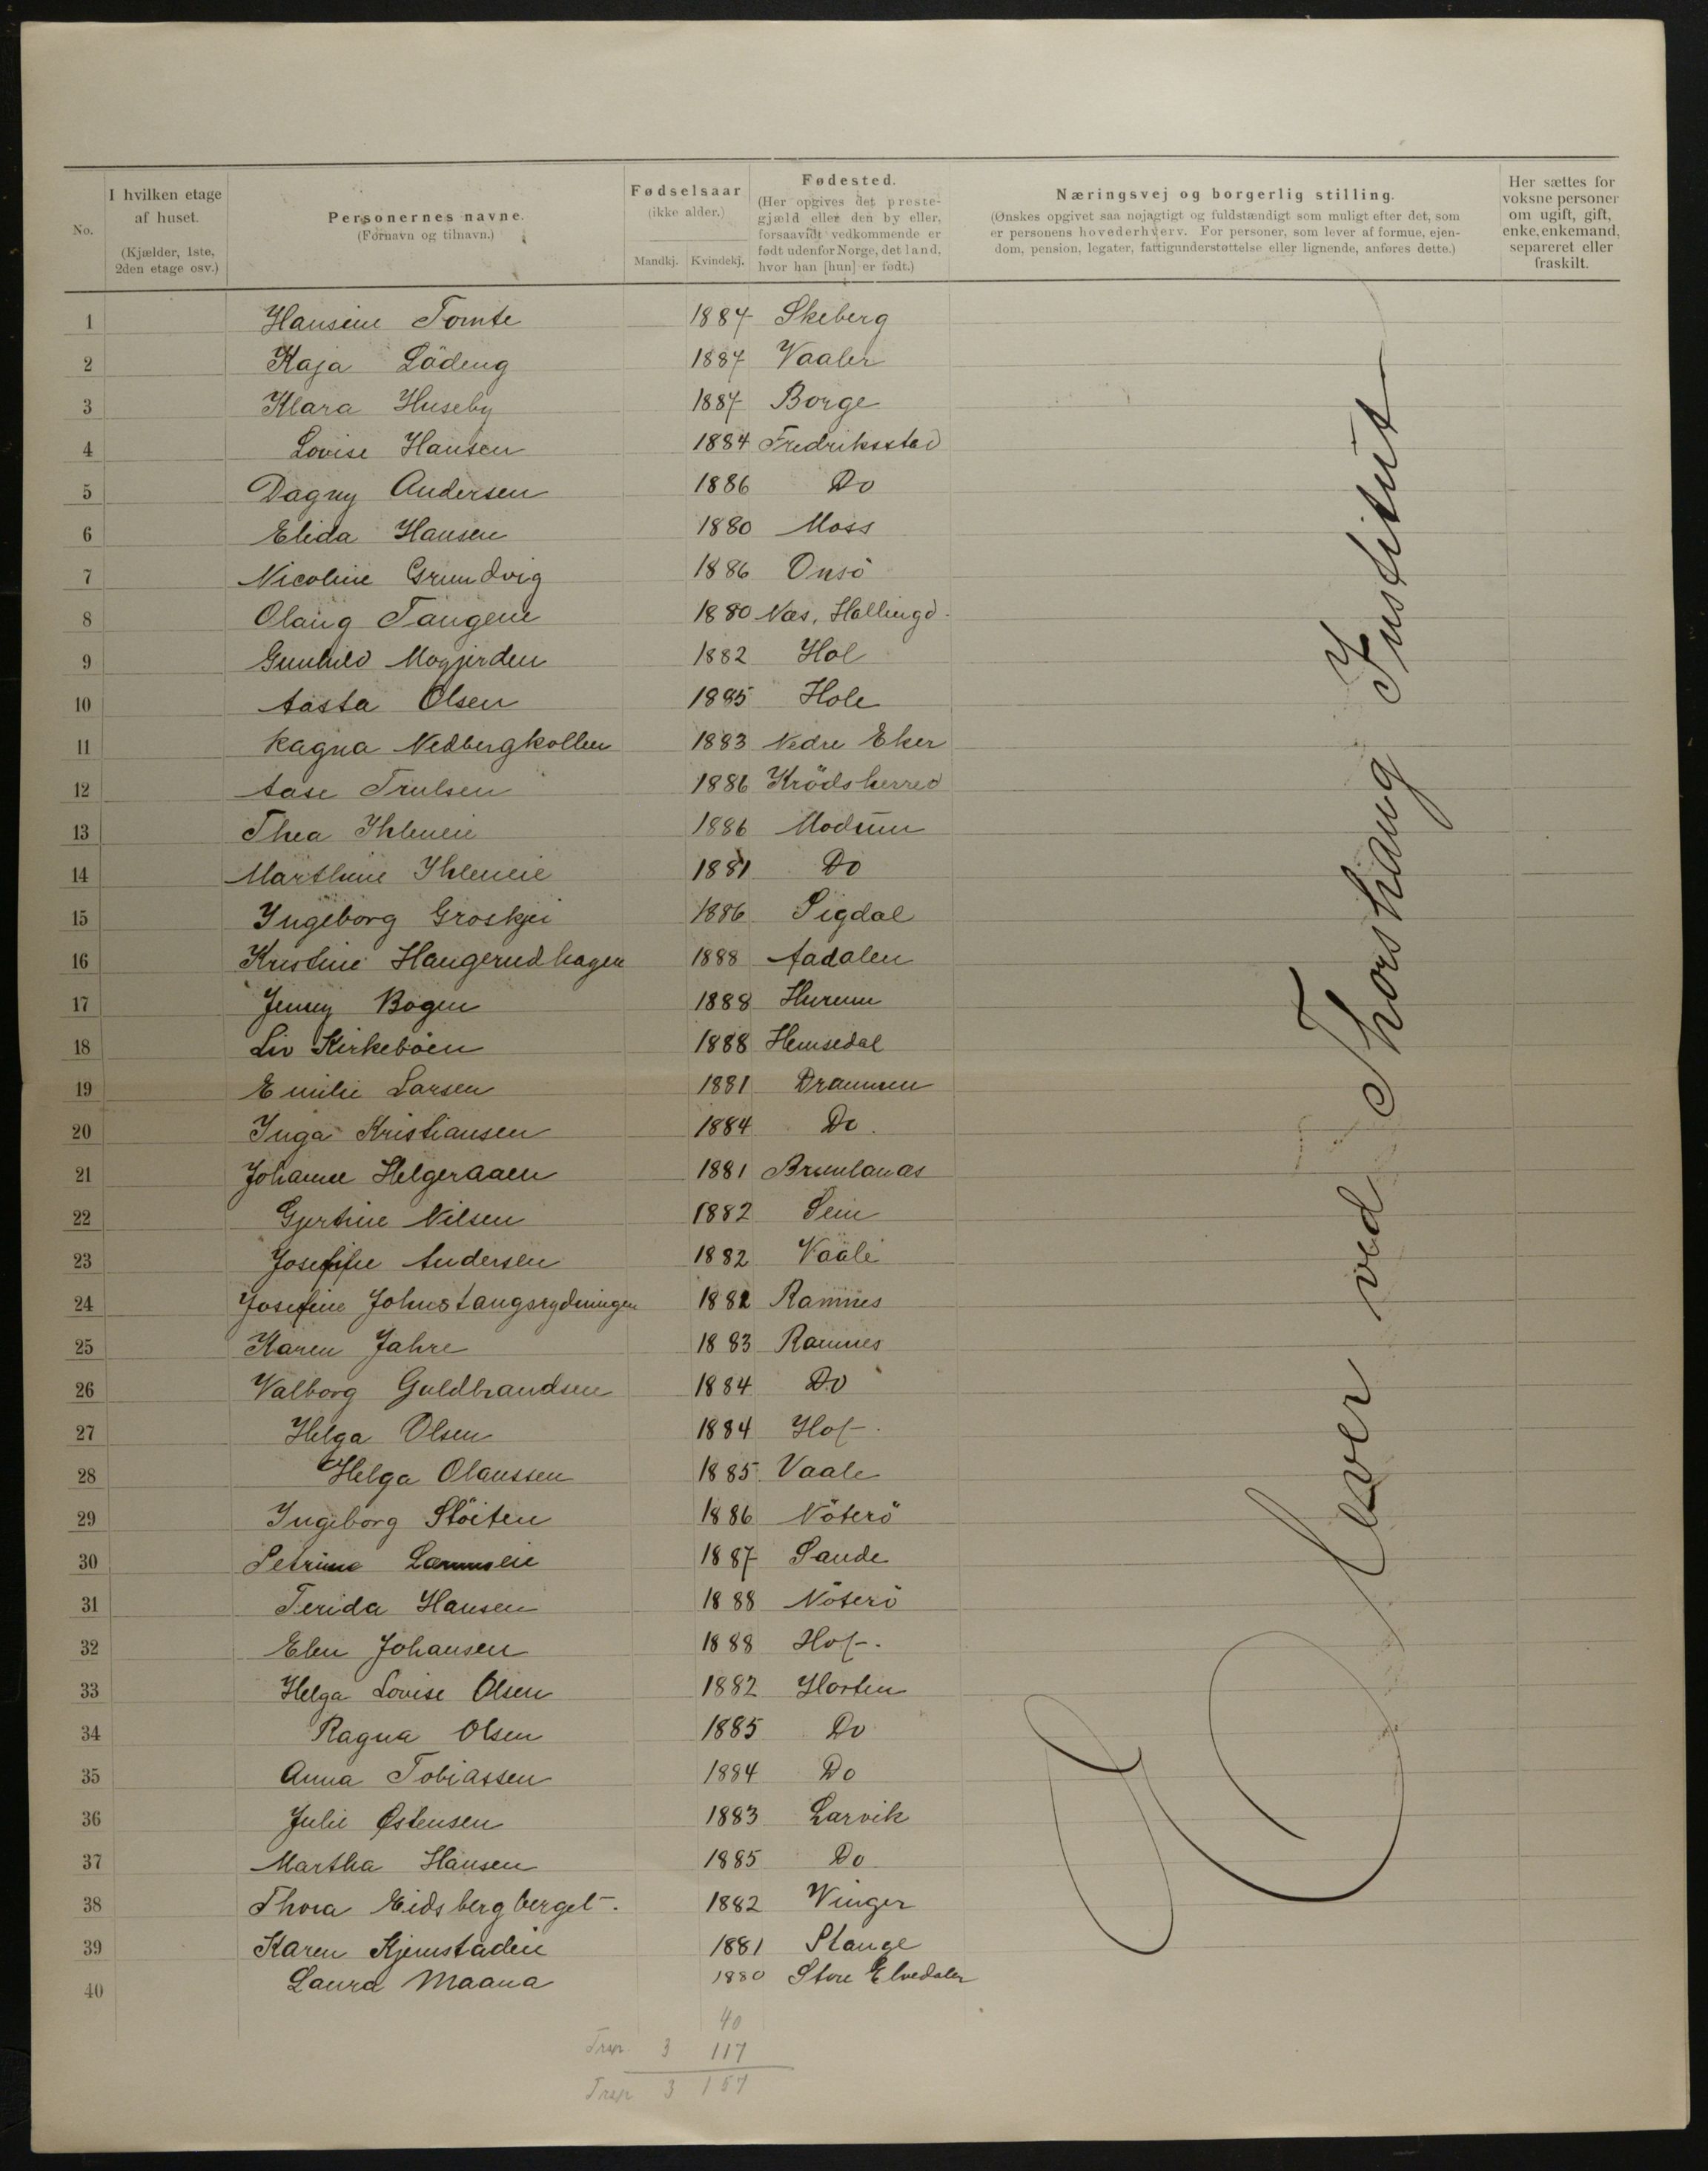 No.
I hvilken etage af huset. (Kjælder, 1ste, 2den etage osv.)
Personernes navne. (Fornavn og tilnavn.)
Fødselsaar (ikke alder.) Mandkj. Kvindekj.
Fødested. (Her opgives det prestegjæld eller den by eller, forsaavidt vedkommende er født udenfor Norge, det land, hvor han [hun] er født.)
Næringsvej og borgerlig stilling. (Ønskes opgivet saa nøjagtigt og fuldstændigt som muligt efter det, som er personens hovederhverv. For personer, som lever af formue, ejendom, pension, legater, fattigunderstøttelse eller lignende, anføres dette.)
Her sættes for voksne personer om ugift, gift, enke, enkemand, separeret eller fraskilt.
1 Hansine Tomte 1887 Skeberg
2 Kaja Lödeng 1887 Vaaler
3 Klara Huseby 1887 Borge
4 Lovise Hansen 1884 Fredriksstad
5 Dagny Andersen 1886 Do
6 Elida Hansen 1880 Moss
7 Nicoline Grundvig 1886 Onsö
8 Olaug Tangene 1880 Næs, Hallingd.
9 Gunhild Mogjerden 1882 Hol
10 Aasta Olsen 1885 Hole
11 Ragna Nedbergkollen 1883 Nedre Eker
12 Aase Trulsen 1886 Krödsherred
13 Thea Ihleneie 1886 Modum
14 Marthine Ihleneie 1881 Do
15 Ingeborg Groskjei 1886 Sigdal
16 Kristine Haugerudhagen 1888 Aadalen
17 Jenny Bogen 1888 Hurum
18 Liv Kirkeböen 1888 Hemsedal
19 Emilie Larsen 1881 Drammen
20 Inga Kristiansen 1884 Do.
21 Johanne Helgeraaen 1881 Brunlanæs
22 Gjertine Nilsen 1882 Sem
23 Josefine Andersen 1882 Vaale
24 Josefine Johnstangsrydningen 1882 Ramnes
25 Karen Jahre 1883 Ramnes
26 Valborg Guldbrandsen 1884 Do
27 Helga Olsen 1884 Hof.
28 Helga Olaussen 1885 Vaale
29 Ingeborg Stöiten 1886 Nöterö
30 Petrine 1887 Sande
31 Terida Hansen 1888 Nöterö
32 Elen Johansen 1888 Hof.
33 Helga Lovise Olsen 1882 Horten
34 Ragna Olsen 1885 Do
35 Anna Tobiassen 1884 Do
36 Julie Østensen 1883 Larvik
37 Martha Hansen 1885 Do
38 Thora Eidsbergberget. 1882 Vinger
39 Karen Kjemstadeie 1881 Stange
40 Laura Maana 1880 Store Elvedalen
Elever ved Thorshaug Institut
40
Trsp. 3 117
Trsp 3 157